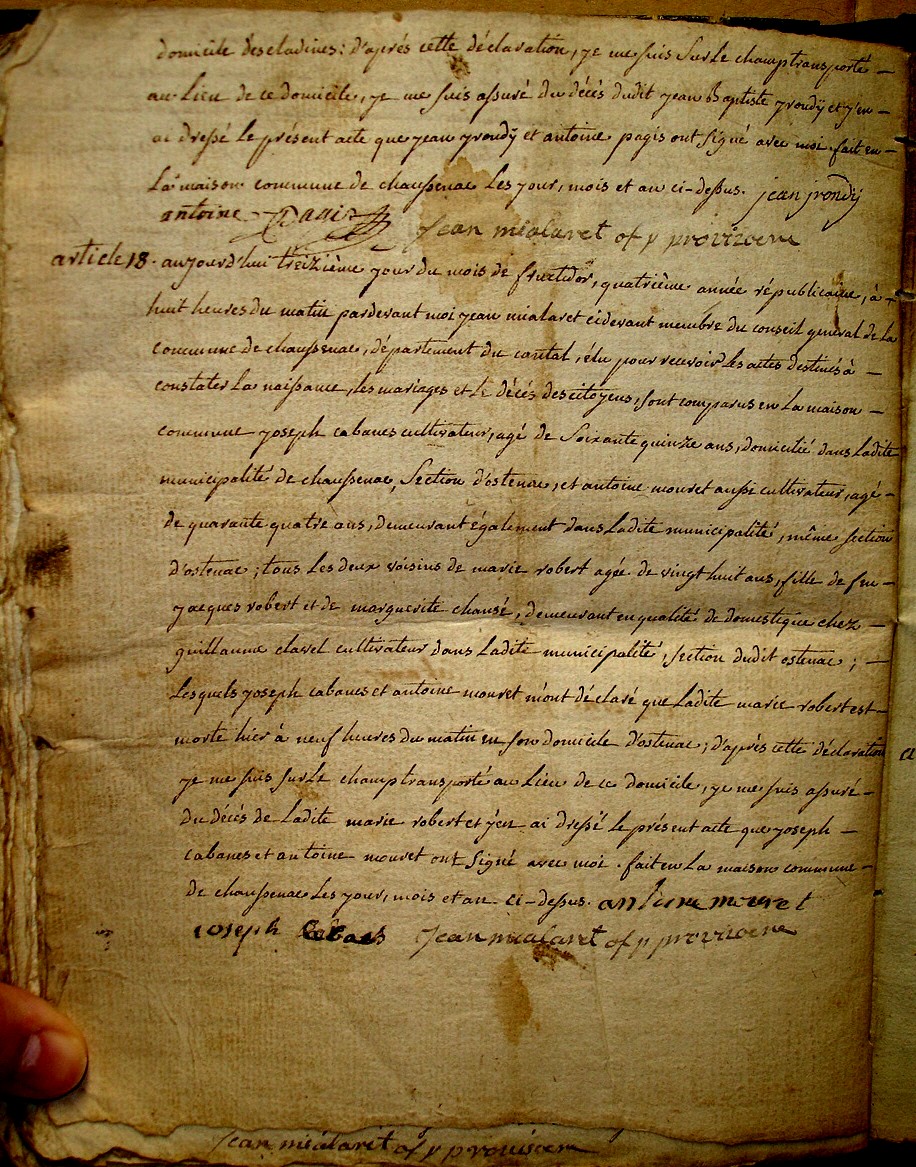 domicile des cladines: d'aprés cette déclaration, je me suis sur le champ transporté –
au lieu de ce domicile, je me suis assuré du décés dudit jean Baptiste jrondÿ et j'en –
ai dressé le présent acte que jean jrondÿ et antoine pagis ont signé avec moi. fait en –
La maison commune de chaussenac les jour, mois et an ci-dessus. jean jrondÿ
antoine Pagis jean mialaret of p provizoere
article 18. aujourd'hui treizième jour du mois de fructidor, quatrième année républicaine, à –
huit heures du matin pardevant moi jean mialaret cidevant membre du conseil general de la
commune de chaussenac, département du cantal, élu pour recevoir les actes destinés à –
constater la naissance, les mariages et le décés des citoyens, sont comparus en la maison –
commune joseph cabanes cultivateur, agé de soixante quinze ans, domicilié dans ladite
municipalité de chaussenac, section d'ostenac, et antoine mouret aussi cultivateur, agé –
de quarante quatre ans, demeurant également dans ladite municipalité, même section
d'ostenac; tous les deux voisins de marie robert agée de vingt huit ans, fille de feu –
jacques robert et de marguerite chansé, demeurant en qualité de domestique chez –
guillaume clavel cultivateur dans ladite municipalité, section dudit ostenac; –
Lesquels joseph cabanes et antoine mouret m'ont déclaré que ladite marie robert est –
morte hier à neuf heures du matin en son domicile d'ostenac; d'aprés cette déclaration
je me suis sur le champ transporté au lieu de ce domicile, je me suis assuré –
du décés de ladite marie robert et j'en ai dressé le présent acte que joseph –
cabanes et antoine mouret ont signé avec moi. fait en la maison commune –
de chaussenac les jour, mois et an ci-dessus. antoine mouret
joseph jean mialaret of p provizoere
jean mialaret of p provisoere